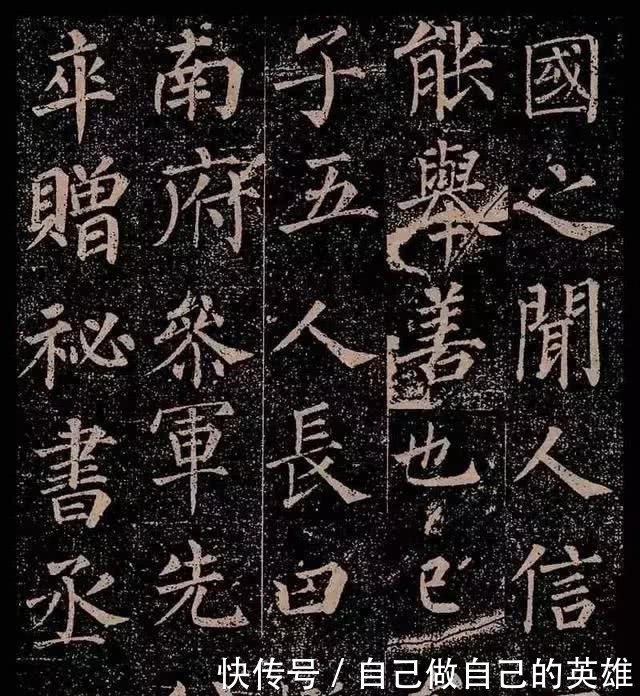 國之聞人信
能舉善也已
子五人長曰
南府叅軍先
卒贈祕書丞
快传号 / 自己做自己的英雄